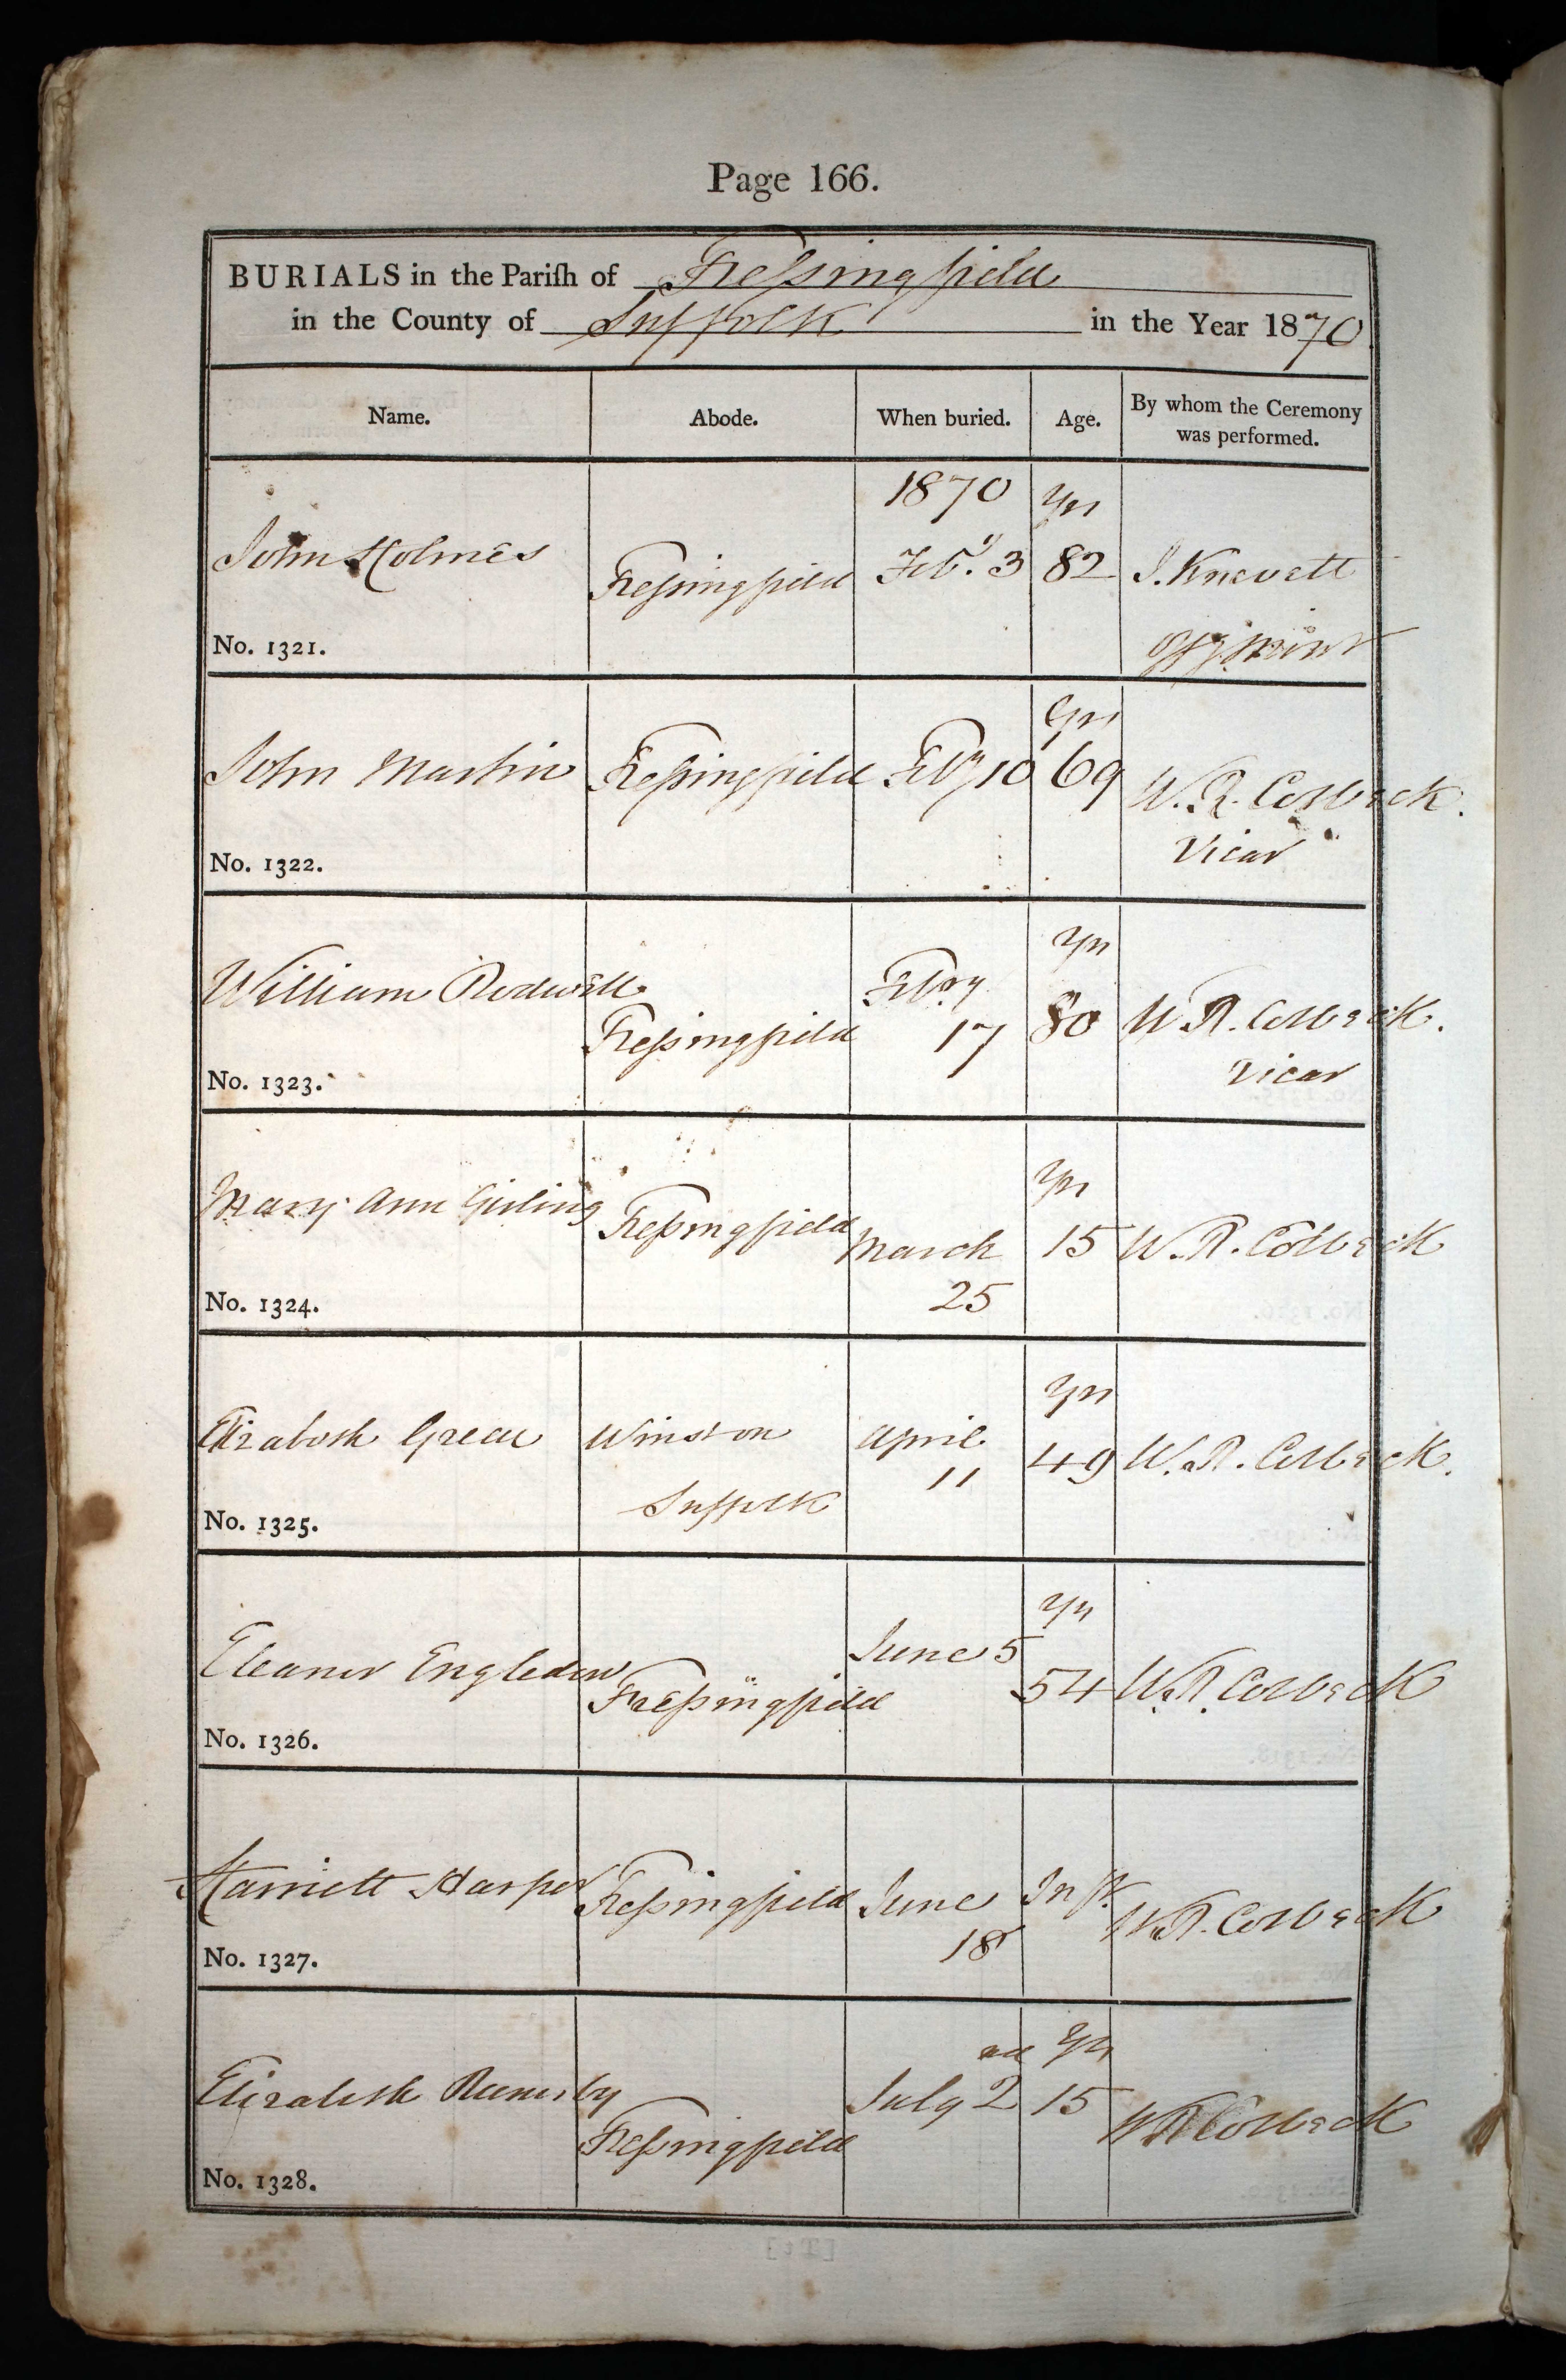 Page 166.
BURIALS in the Pariſh of Freſsingfield
in the County of Suffolk in the Year 1870
Name. Abode. When buried. Age. By whom the Ceremony
was performed.
1870 Yrs
John Holmes Freſsingfield Feb.y 3 82 J. Knevett
No. 1321.
Yrs
John Martin Freſsingfield Feby 10 69 W. R. Colbeck.
Vicar
No. 1322.
Yrs
William Rodwell Feb.ry
Freſsingfield 17 80 W R. Colbeck.
Vicar
No. 1323.
Yrs
Mary Ann Girling Freſsingfield March 15 W. R. Colbeck
25
No. 1324.
Yrs
Elizabeth Green Winston April 49 W. R. Colbeck.
Suffolk 11
No. 1325.
Yrs
Eleanor Engledow June 5
Freſsingfield 54 W. R. Colbeck
No. 1326.
Harriett Harper Freſsingfield June Inft W. R. Colbeck
18
No. 1327.
Yrs
Elizabeth July 2 15 W R Colbeck
Freſsingfield
No. 1328.